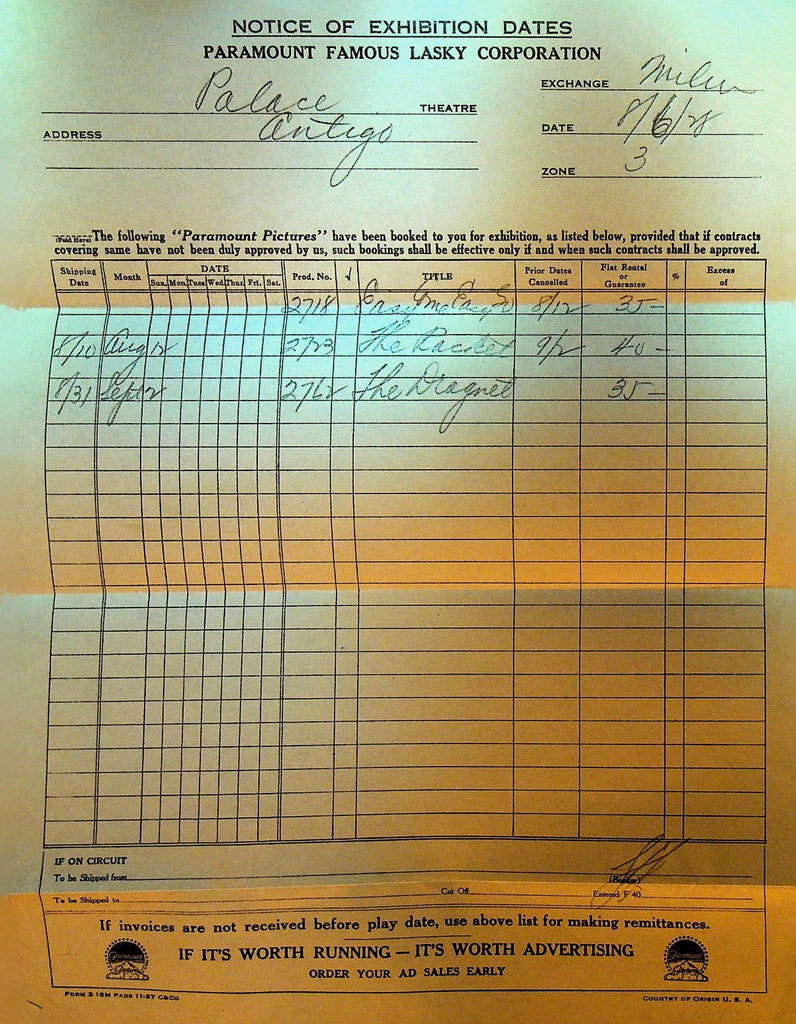 NOTICE OF EXHIBITION DATES
PARAMOUNT FAMOUS LASKY CORPORATION
Palace THEATRE
EXCHANGE Milw
ADDRESS Antigo
DATE 8/6/28
ZONE 3
(Fold Here) The following "Paramount Pictures" have been booked to you for exhibition, as listed below, provided that if contracts
covering same have not been duly approved by us, such bookings shall be effective only if and when such contracts shall be approved.
Shipping Date Month DATE Sun. Mon. Tues. Wed. Thur. Fri. Sat. Prod. No. √ TITLE Prior Dates Cancelled Flat Rental or Guarantee % Excess of
2718 Easy Come Easy Go 8/12 35 —
8/10 Aug 12 2723 The Racket 9/2 40 —
8/31 Sept 2 2762 The Dragnet 35 —
IF ON CIRCUIT
To be Shipped from (Booker)
To be Shipped to Cut Off Entered F 40
If invoices are not received before play date, use above list for making remittances.
IF IT'S WORTH RUNNING — IT'S WORTH ADVERTISING
ORDER YOUR AD SALES EARLY
Paramount Pictures
Paramount Pictures
FORM S 18M PADS 11-27 C&CO
COUNTRY OF ORIGIN U. S. A.